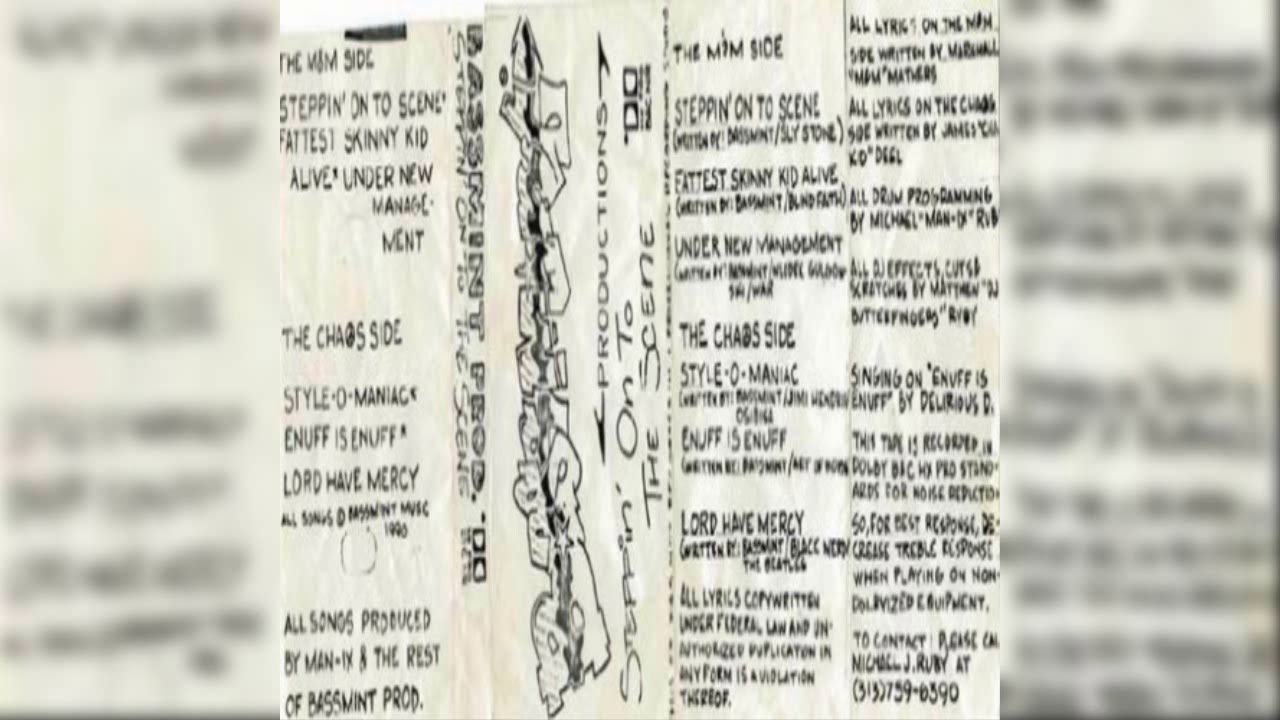 THE M&M SIDE
STEPPIN' ON TO SCENE*
FATTEST SKINNY KID
ALIVE* UNDER NEW
MANAGE-
MENT
THE CHAOS SIDE
STYLE-O-MANIAC*
ENUFF IS ENUFF*
LORD HAVE MERCY
ALL SONGS © BASSMINT MUSIC
1990
ALL SONGS PRODUCED
BY MAN-IX & THE REST
OF BASSMINT PROD.
BASSMINT PROD.
STEPPIN' ON TO THE SCENE
BASSMINT
PRODUCTIONS
Steppin' On To
THE SCENE
THE M&M SIDE
STEPPIN' ON TO SCENE
(WRITTEN BY: BASSMINT/SLY STONE)
FATTEST SKINNY KID ALIVE
(WRITTEN BY: BASSMINT/BLIND FAITH)
UNDER NEW MANAGEMENT
(WRITTEN BY: BASSMINT/
/WAR
THE CHAOS SIDE
STYLE-O-MANIAC
(WRITTEN BY: BASSMINT/JIMI HENDRIX
OSIBISA
ENUFF IS ENUFF
(WRITTEN BY: BASSMINT/ART OF NOISE
LORD HAVE MERCY
(WRITTEN BY: BASSMINT/BLACK
THE BEATLES
ALL LYRICS COPYWRITTEN
UNDER FEDERAL LAW AND UN-
AUTHORIZED DUPLICATION IN
ANY FORM IS A VIOLATION
THEREOF.
ALL LYRICS ON THE M&M
SIDE WRITTEN BY MARSHALL
"M&M" MATHERS
ALL LYRICS ON THE CHAOS
SIDE WRITTEN BY JAMES
KID" DEEL
ALL DRUM PROGRAMMING
BY MICHAEL "MAN-IX" RUB
ALL DJ EFFECTS, CUTS &
SCRATCHES BY MATTHEW "DJ
BUTTERFINGERS" RUBY
SINGING ON "ENUFF IS
ENUFF" BY DELIRIOUS D.
THIS TAPE IS RECORDED IN
DOLBY B&C HX PRO STAND-
ARDS FOR NOISE REDUCTION
SO, FOR BEST RESPONSE, DE-
CREASE TREBLE RESPONSE
WHEN PLAYING ON NON-
DOLBYIZED EQUIPMENT.
TO CONTACT: PLEASE CAL
MICHAEL J. RUBY AT
(313)759-6390